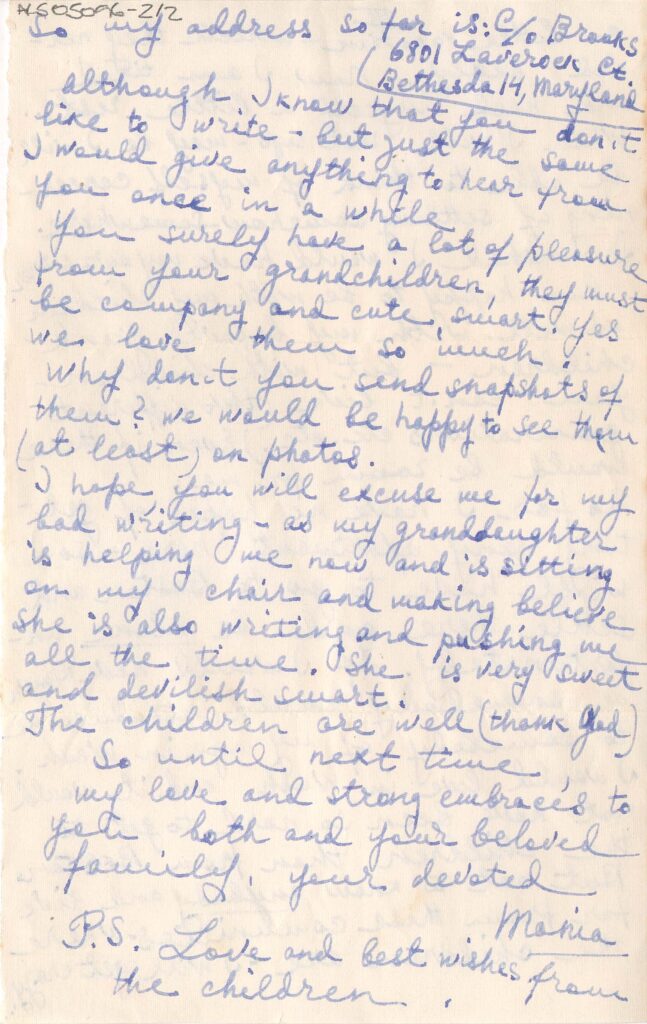 ALS05096-2/2
So my address so far is: C/o Brooks
6801 Laverock Ct.
Bethesda 14, Maryland
although I know that you don't
like to write - but just the same
I would give anything to hear from
you once in a while.
You surely have a lot of pleasure
from your grandchildren, they must
be company and cute, smart. Yes
we love them so much.
Why don't you send snapshots of
them? We would be happy to see them
(at least) on photos.
I hope you will excuse me for my
bad writing - as my granddaughter
is helping me now and is sitting
on my chair and making believe
she is also writing and pushing me
all the time. She is very sweet
and devilish smart.
The children are well (thank God)
So until next time,
my love and strong embraces to
you both and your beloved
family, your devoted
Mania
P.S. Love and best wishes from
the children.